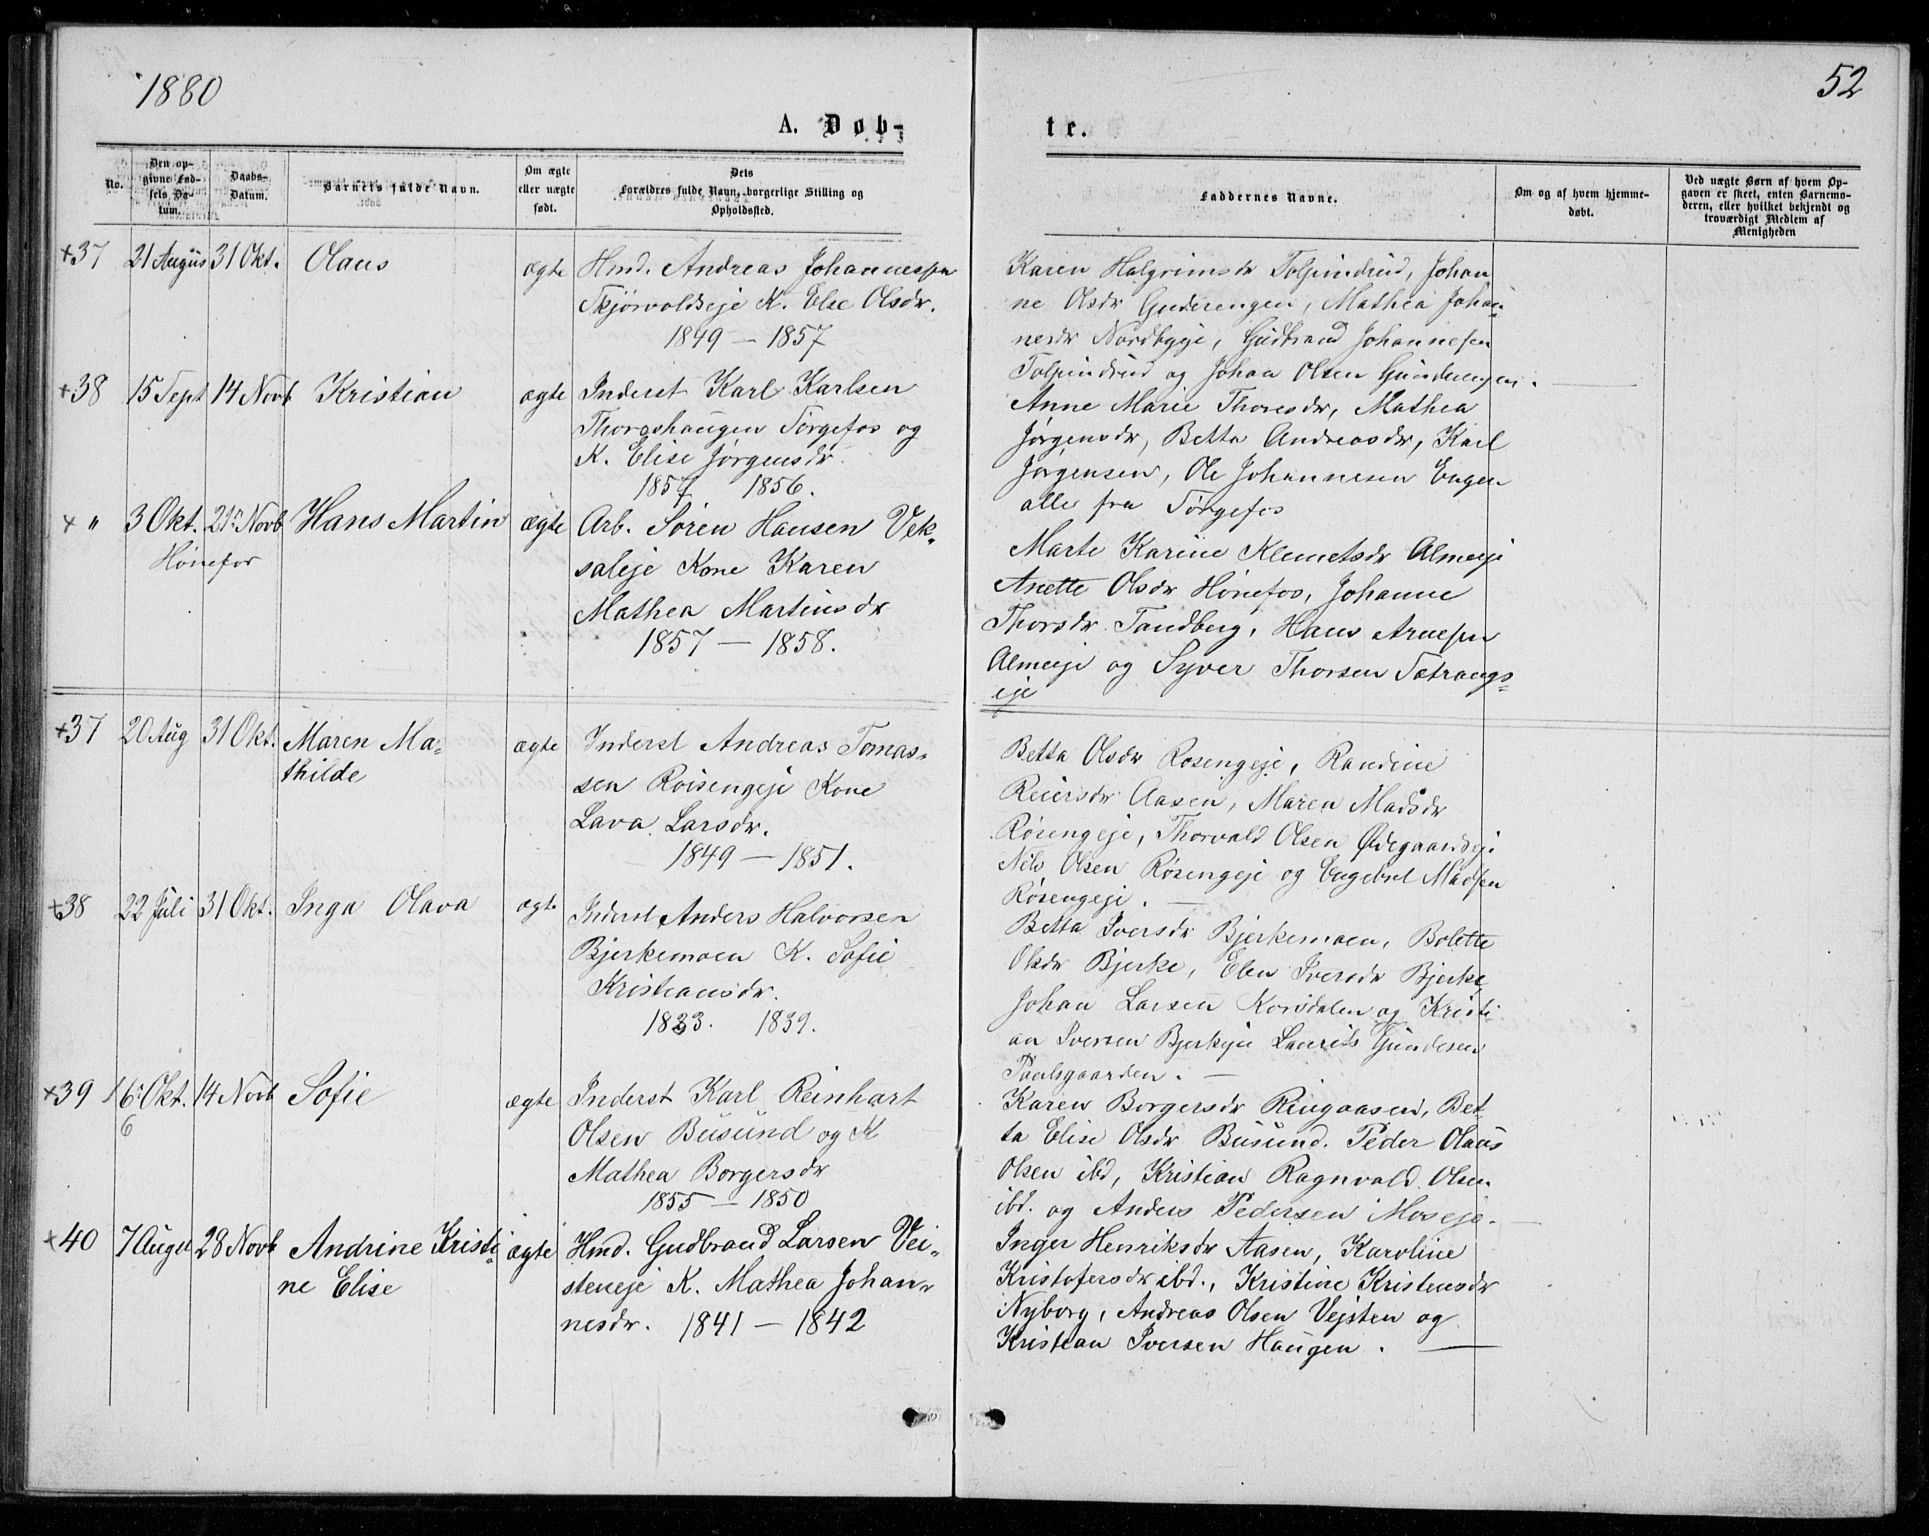 1880
52
A. Døb-
te.
No.
Den op-
givne Fød-
sels Da-
tum.
Daabs-
Datum.
Barnets fulde Navn.
Om ægte
eller uægte
født.
Dets
Forældres fulde Navn, borgerlige Stilling og
Opholdssted.
Faddernes Navne.
Om og af hvem hjemme-
døbt.
Ved uægte Børn af hvem Op-
gaven er skeet, enten Barnemo-
deren, eller hvilket bekjendt og
troværdigt Medlem af
Menigheden
+37 21 August 31 Okt. Olaus ægte Hmd. Andreas Johannessen
Tkjørvoldseje K. Else Olsdr.
1849 – 1857
Karen Halgrimsdr Tolpindrud, Johan
ne Olsdr Gunderengen, Mathea Johan
nesdr Nordbyeje, Gudbrand Johannesen
Tolpindrud og Johan Olsen Gunderengen.
+38 15 Sept 14 Novb Kristian ægte Inderst Karl Karlsen
Thoreshaugen Tørgefos og
K. Elise Jørgensdr
1857 1856.
Anne Marie Thoresdr, Mathea
Jørgensdr, Betta Andreasdr, Karl
Jørgensen, Ole Johannesen Engen
alle fra Tørgefos
+ " 3 Okt. 21 Novb Hans Martin ægte Arb. Søren Hansen Vek-
Hønefos
saleje Kone Karen
Mathea Martinsdr
1857 – 1858.
Marte Karine Klemetsdr Almeje
Anette Olsdr Hønefos, Johanne
Thorsdr Tandberg, Hans Arnesen
Almeje og Syver Thorsen Setrangs-
eje
+37 20 Aug 31 Okt. Maren Ma-
thilde
ægte Inderst Andreas Tomas-
sen Røisengeje Kone
Lava Larsdr.
1849 – 1851.
Betta Olsdr Rosengeje, Randine
Reiersdr Aasen, Maren Madsdr
Røsengeje, Thorvald Olsen Ødegaardseje
Nils Olsen Røsengeje og Engebret Madsen
Røsengeje. –
+38 22 Juli 31 Okt. Inga Olava ægte Inderst Anders Halvorsen
Bjerkemoen K. Sofie
Kristiansdr.
1833. 1839.
Betta Iversdr Bjerkemoen, Bolette
Olsdr Bjerke, Elen Iversdr Bjerke,
Johan Larsen Korsdalen og Kristi
an Iversen Bjerkeje Laurits Gundesen
Paulsgaarden. –
+39 16 Okt. 14 Novb Sofie ægte Inderst Karl Reinhart
6
Olsen Busund og K
Mathea Borgersdr
1855 – 1850
Karen Borgersdr Ringaasen, Bet-
ta Elise Olsdr Busund. Peder Olaus
Olsen ibd, Kristian Ragnvald Olsen
ibd. og Anders Pedersen Moseje. –
+40 7 August 28 Novb Andrine Kristi
ne Elise
ægte Hmd. Gudbrand Larsen Vei-
steneje K. Mathea Johan-
nesdr. 1841 – 1842
Inger Henriksdr Aasen, Karoline
Kristofersdr ibd., Kristine Kristensdr
Nyborg, Andreas Olsen Vejsten og
Kristian Iversen Haugen. –